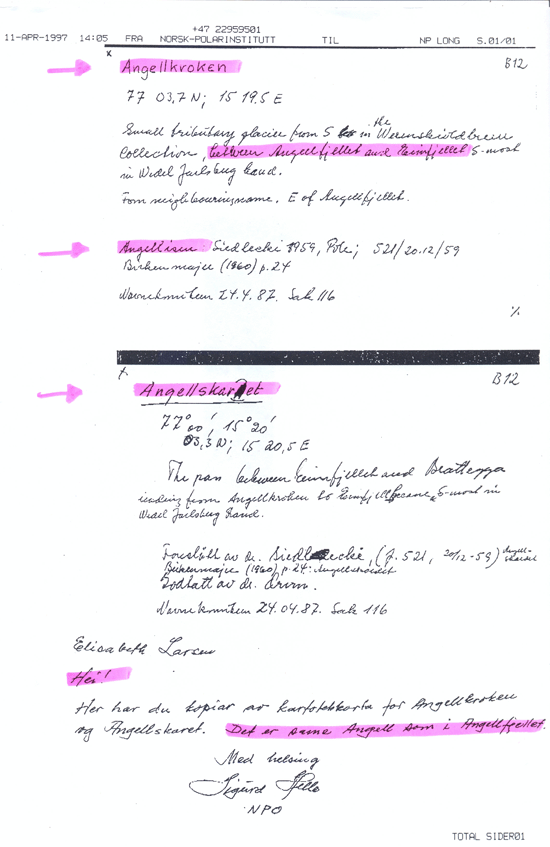 +47 22959501
11-APR-1997 14:05 FRA NORSK-POLARINSTITUTT TIL NP LONG S.01/01
x
Angellkroken B12
77 03,7 N; 15 19.5 E
the
Small tributary glacier from S in Werenskioldbreen
Collection, between Angellfjellet and Eimfjellet S-most
in Wedel Jarlsberg Land.
From neighbouringname. E of Angellfjellet.
Angellisen Siedlecki 1959, Pole; 521/20.12/59
Birkenmajer (1960) p.24
Navnekomiteen 24.4.87. Sak 116
%
x
B12
Angellskaret
77° 00', 15° 20'
03,3 N; 15 20,5 E
The pass between Eimfjellet and Bratteggа
leading from Angellkroken to S-most in
Wedel Jarlsberg Land.
Foreslått av dr. Siedlecki, (J. 521, 20/12-59) Angell-
Birkenmajer (1960) p.24:
Godtatt av dr.
Navnekomiteen 24.04.87. Sak 116
Elisabeth Larsen
Hei!
Her har du kopiar av kartotekkorta for Angellkroken
og Angellskaret. Det er same Angell som i Angellfjellet.
Med helsing
Sigurd
NPO
TOTAL SIDER01